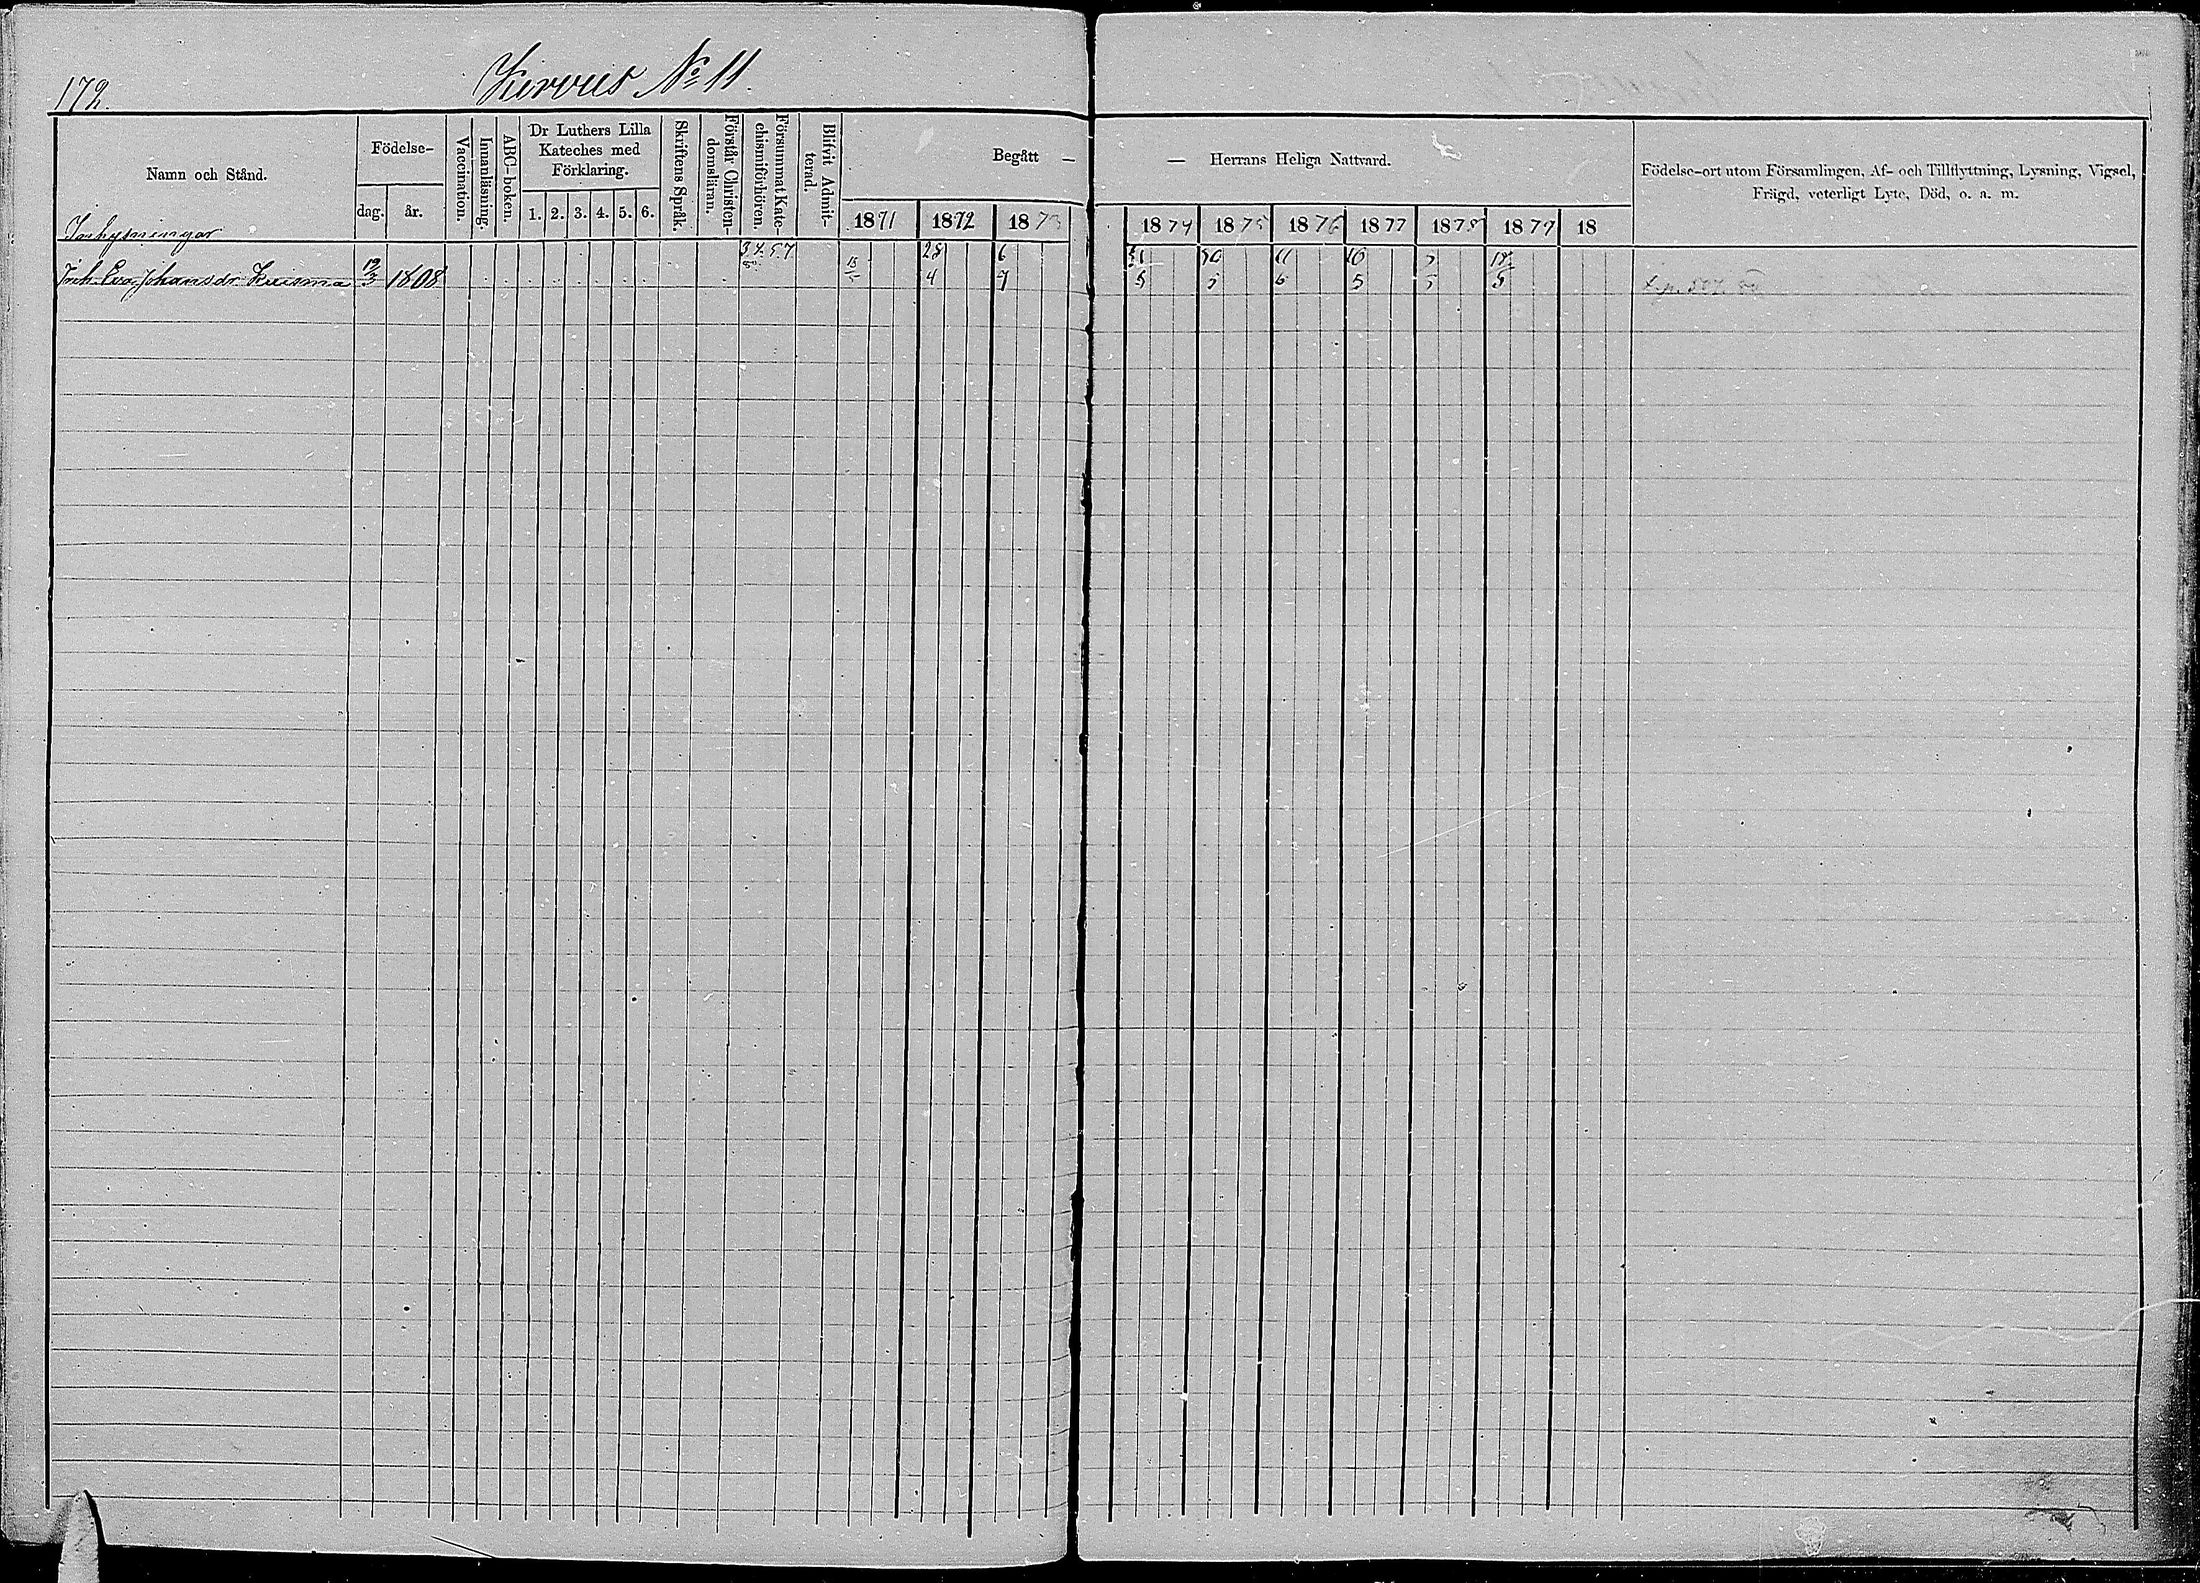 172.
Kirvus No 11.
Namn och Stånd.
Födelse-
dag.
år.
Vaccination.
Innanläsning.
ABC-boken.
Dr Luthers Lilla
Kateches med
Förklaring.
1. 2. 3. 4. 5. 6.
Skriftens Språk.
Förstår Christen-
domsläran.
Försummat Kate-
chismiförhören.
Blifvit Admit-
terad.
Begått —
— Herrans Heliga Nattvard.
1871 1872 1873 1874 1875 1876 1877 1878 1879 18
Födelse-ort utom Församlingen, Af- och Tillflyttning, Lysning, Vigsel,
Frägd, veterligt Lyte, Död, o. a. m.
Inhysningar
28 6 10 11 10
Inh. Eva Johansdr. Kuisma 1808 4 9 5 5 6 5 5 5